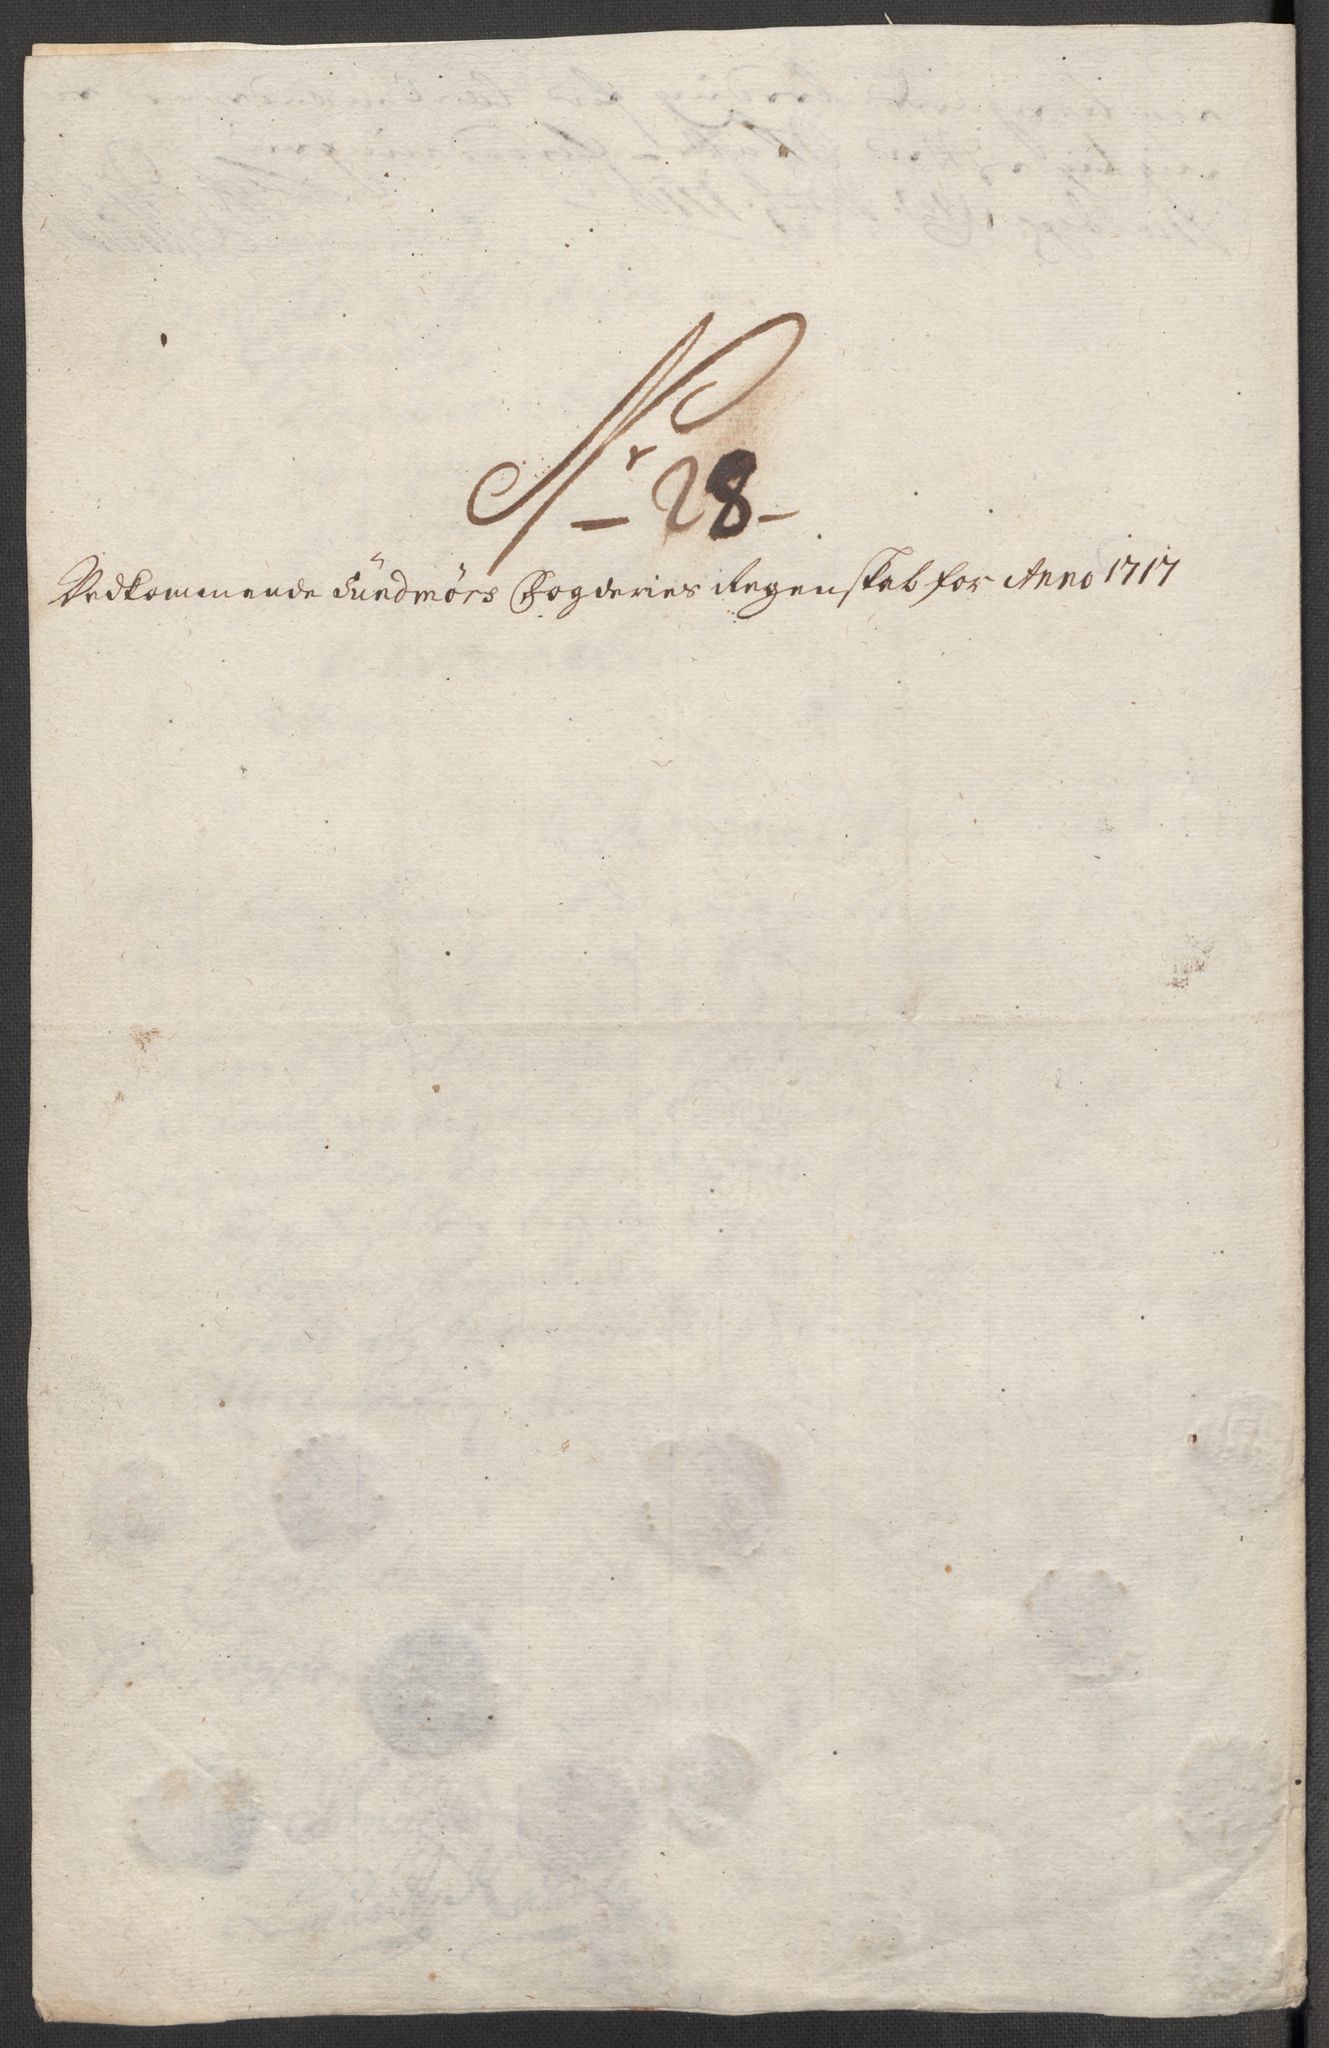 Nr 28
Vedkommende Sündmörs Fogderies Regenskab for Anno 1717